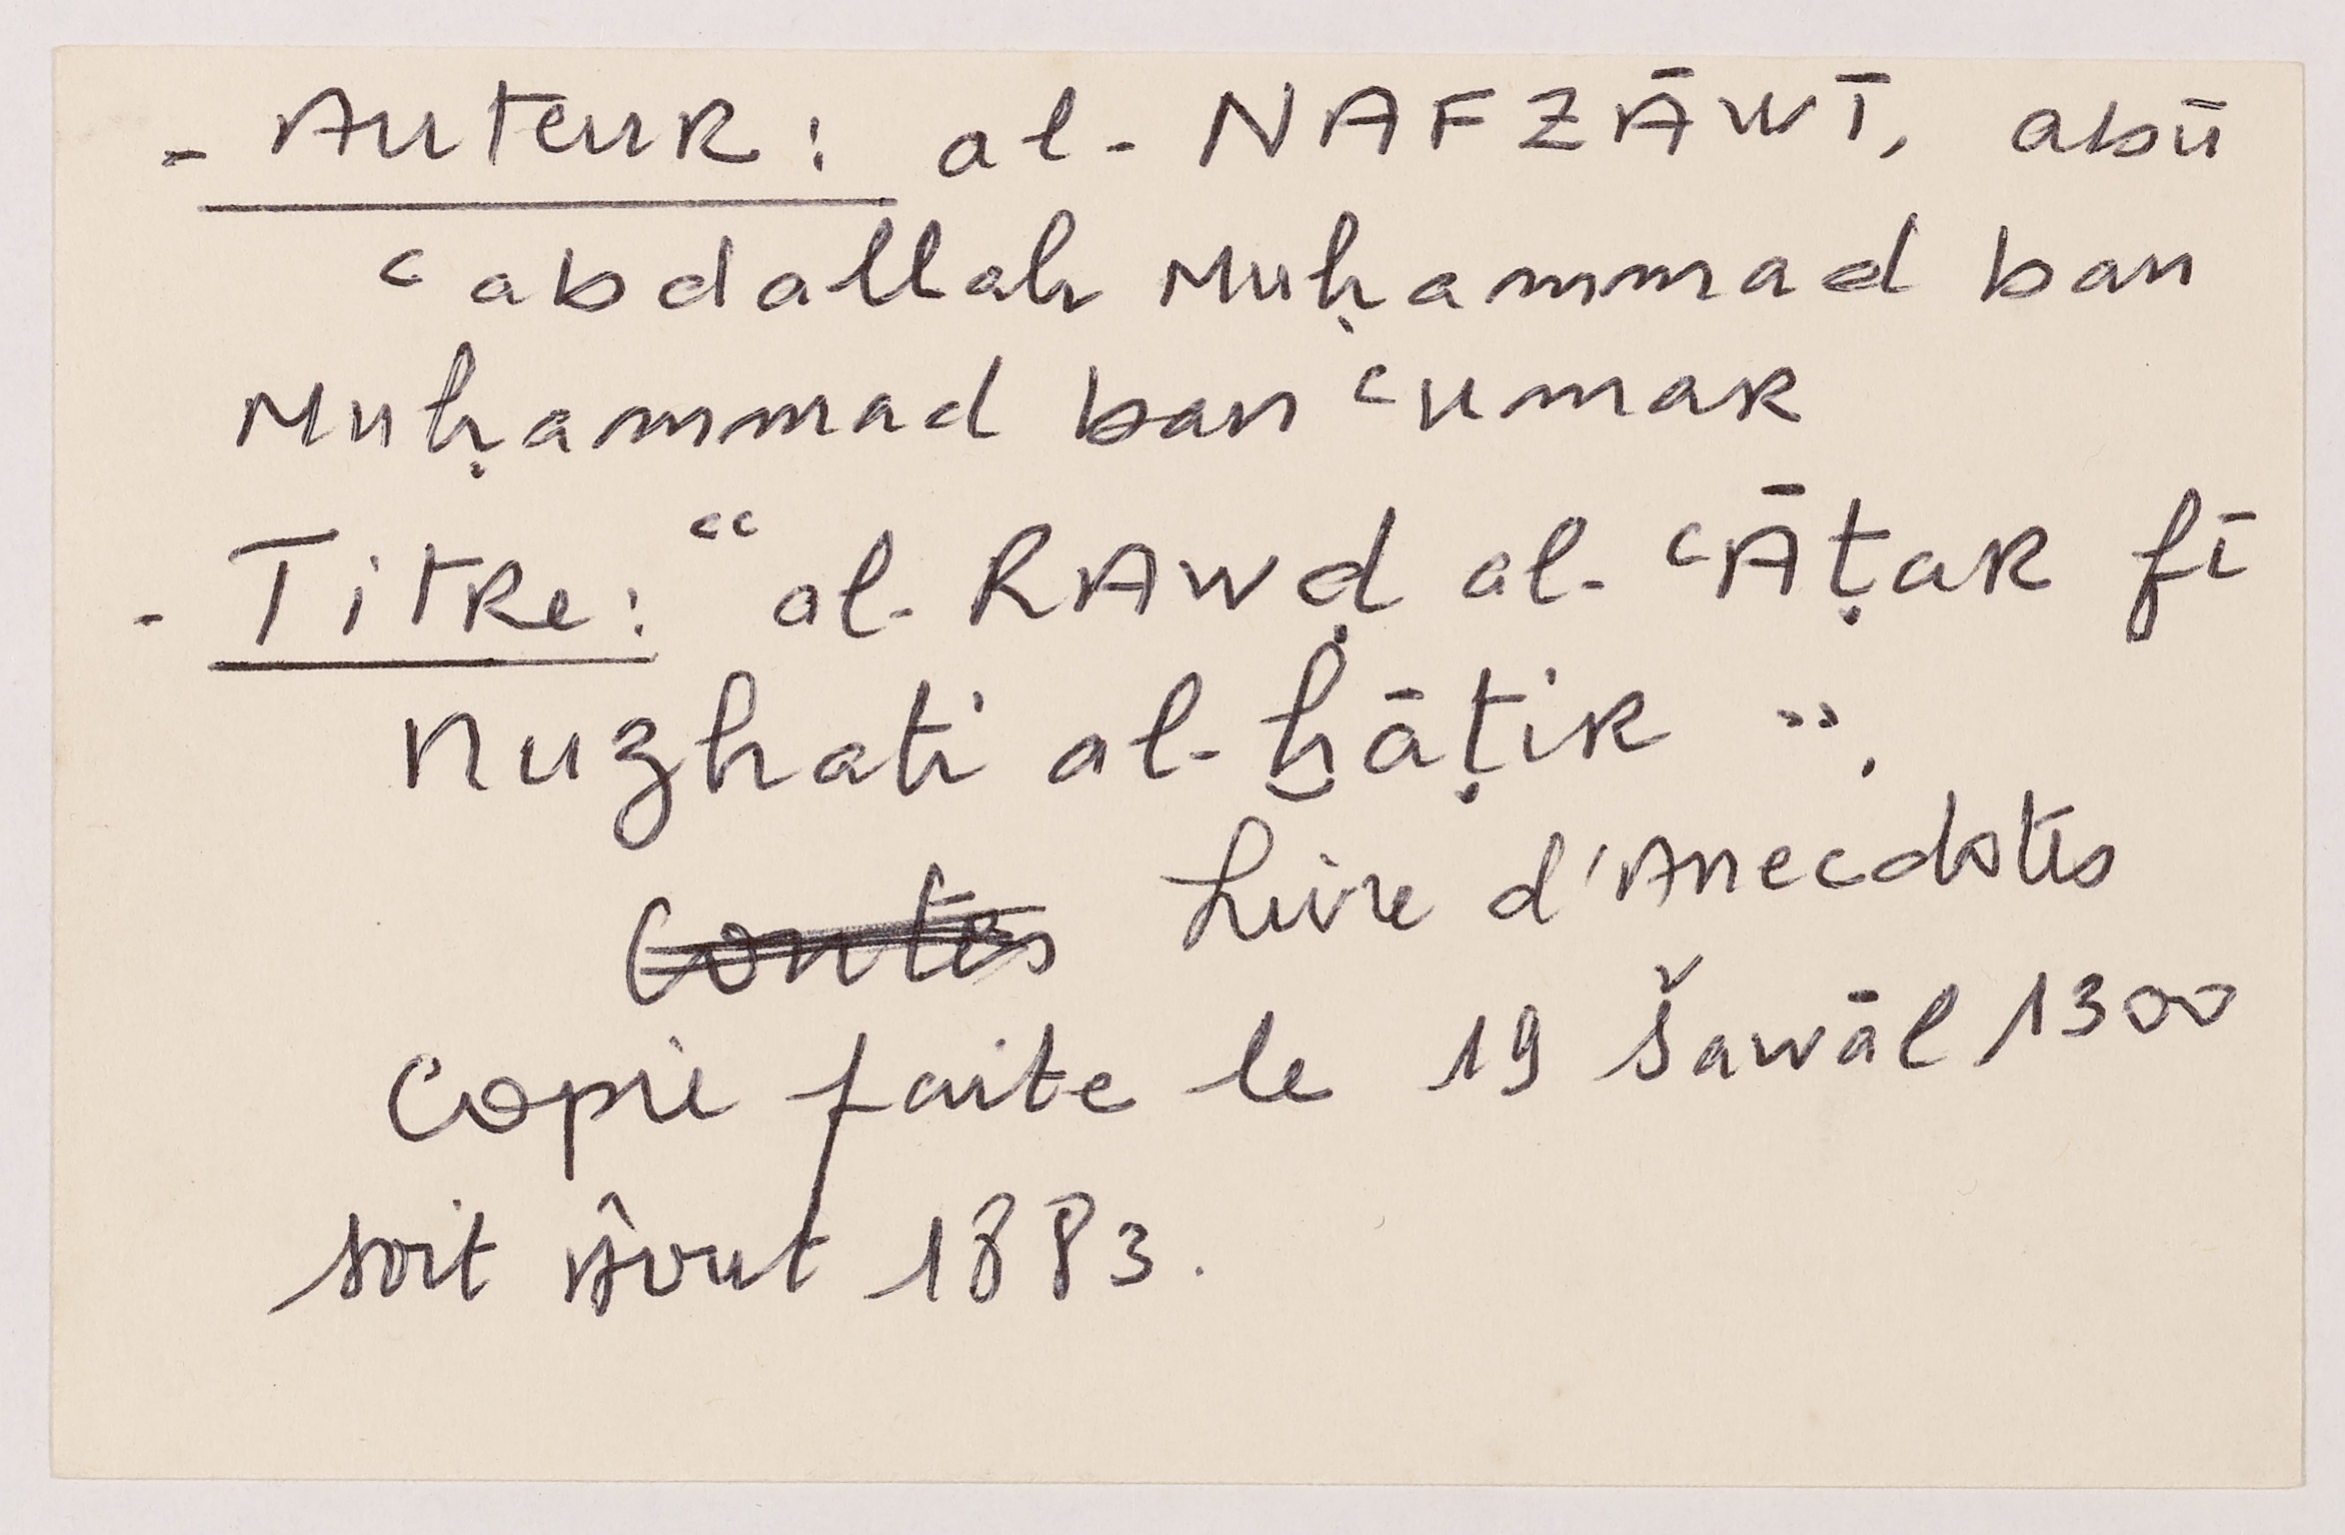 - Auteur : al-NAFZĀWĪ, abū
ʿabdallah Muḥammad ban
Muḥammad ban ʿumar
- Titre : "al-RAWḍ al-ʿĀṭar fī
nuzhati al-ḫāṭir".
Contes Livre d'Anecdotes
Copie faite le 19 šawāl 1300
soit Août 1883.